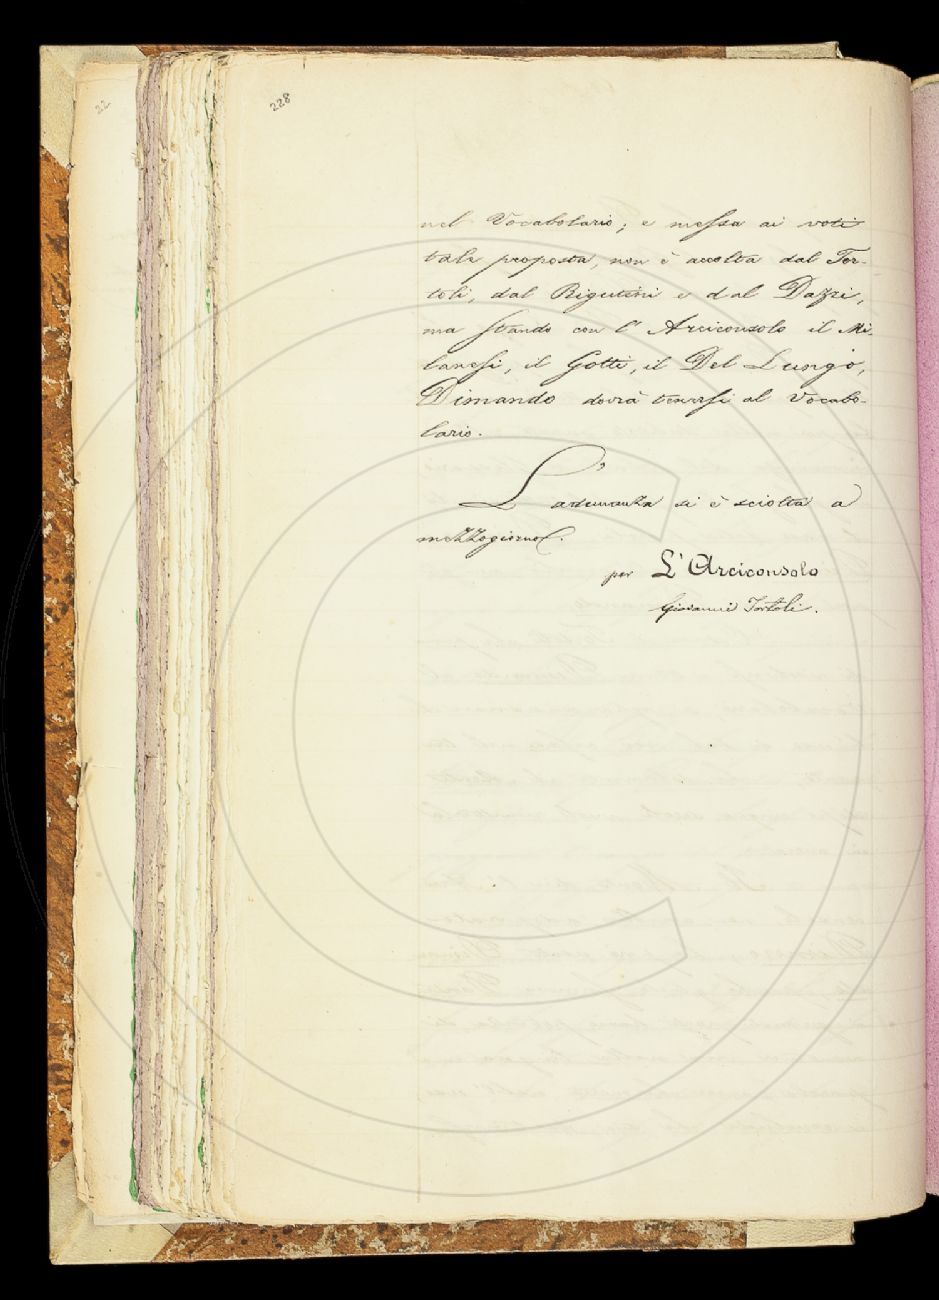 22
228
nel Vocabolario; e messa ai voti
tale proposta, non è accolta dal Tor-
toli, dal Rigutini e dal Dazzi,
ma stando con l'Arciconsolo il Mi-
lanesi, il Gotti, il Del Lungo,
Dimando dovrà tenersi al Vocabo-
lario.
L'adunanza si è sciolta a
mezzogiorno.
per L'Arciconsolo
Giovanni Tortoli.